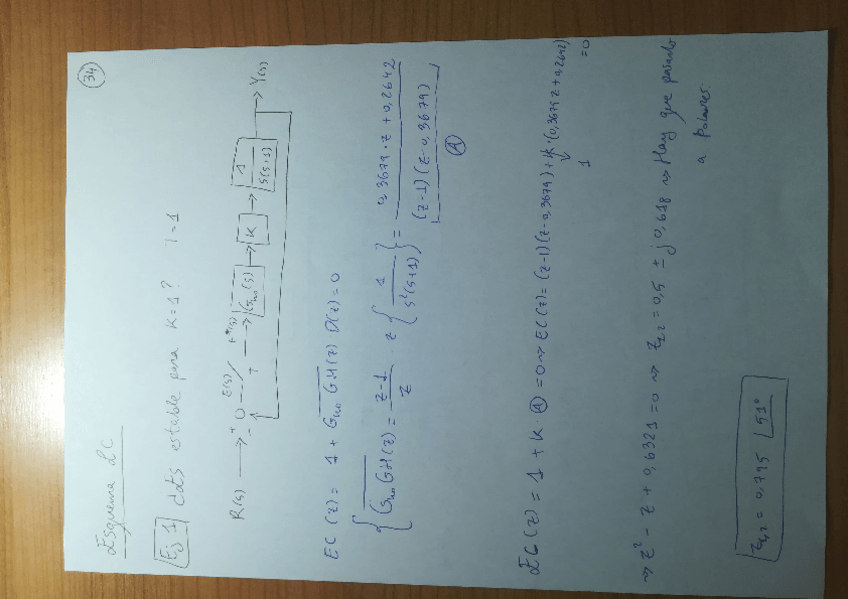 34
Esquema LC
Ej 1 ¿Es estable para K=1? T=1
R(s) → + - O E(s) T E*(s) → G_ho(s) → K → 1/(s(s+1)) → Y(s)
EC(z) = 1 + G_ho GH(z) D(z) = 0
{ G_ho GH(z) = (z-1)/z · z { 1/(s²(s+1)) } = (0,3679·z + 0,2642)/((z-1)(z-0,3679))
A
EC(z) = 1 + K·A = 0 ⇝ EC(z) = (z-1)(z-0,3679) + K·(0,3679z+0,2642) = 0
1
⇝ z² - z + 0,6321 = 0 ⇝ z₁,₂ = 0,5 ± j 0,618 ⇝ Hay que pasarlo
a polares.
z₁,₂ = 0,795 ∠51°